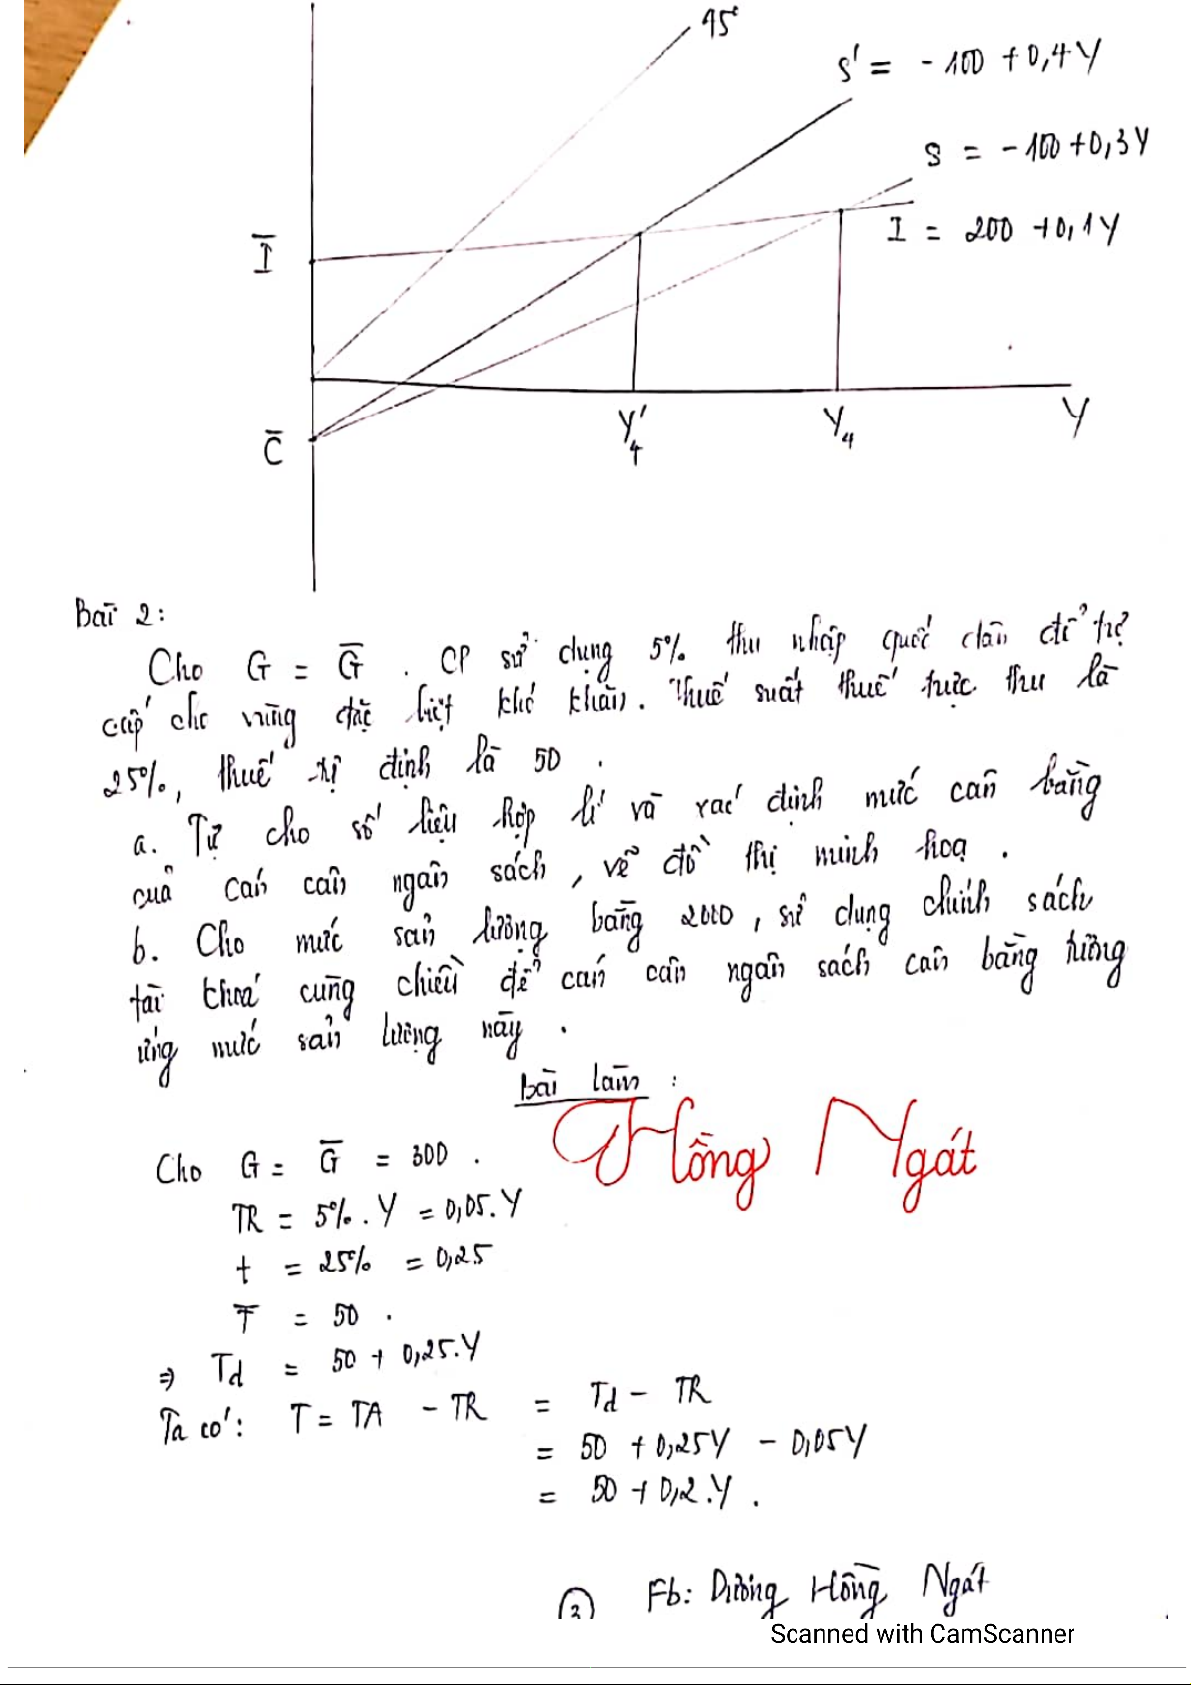 45°
S' = - 100 + 0,4Y
S = - 100 + 0,3Y
I̅
I = 200 + 0,1Y
C̅
Y'₄
Y₄
Y
Bài 2:
Cho G = G̅ . CP sử dụng 5% thu nhập quốc dân để trợ
cấp cho vùng đặc biệt khó khăn. Thuế suất thuế trực thu là
25%, thuế tự định là 50 .
a. Tự cho số liệu hợp lí và xác định mức cân bằng
của cán cân ngân sách, vẽ đồ thị minh hoạ .
b. Cho mức sản lượng bằng 2000, sử dụng chính sách
tài khoá cùng chiều để cán cân ngân sách cân bằng tương
ứng mức sản lượng này .
Bài làm :
Hồng Ngát
Cho G = G̅ = 300 .
TR = 5% . Y = 0,05.Y
t = 25% = 0,25
T̅ = 50 .
⇒ Td = 50 + 0,25.Y
Ta có: T = TA - TR = Td - TR
= 50 + 0,25Y - 0,05Y
= 50 + 0,2.Y .
Fb: Dương Hồng Ngát
Scanned with CamScanner